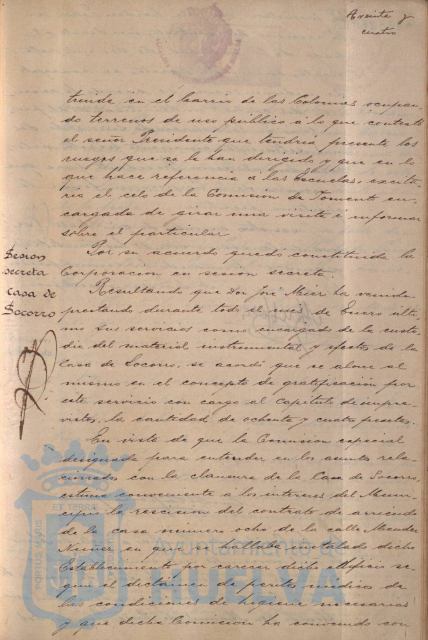 treinta y
cuatro
truida en el barrio de las Colonias ocupan-
do terrenos de uso público á lo que contestó
el señor Presidente que tendría presente los
ruegos que se le han dirigido y que en lo
que hace referencia á las Escuelas, excita-
ría el celo de la Comisión de Fomento en-
cargada de girar una visita é informar
sobre el particular.
Por su acuerdo quedó constituida la
Corporación en sesión secreta.
Sesion
secreta
Casa de
Socorro
Resultando que Don José Mier ha venido
prestando durante todo el mes de Enero últi-
mo sus servicios como encargado de la custo-
dia del material instrumental y efectos de la
Casa de Socorro, se acordó que se abone al
mismo en el concepto de gratificación por
este servicio con cargo al Capítulo de impre-
vistos, la cantidad de ochenta y cuatro pesetas.
En vista de que la Comisión especial
designada para entender en los asuntos rela-
cionados con la clausura de la Casa de Socorro,
estima conveniente a los intereses del Muni-
cipio la rescisión del contrato de arriendo
de la casa número ocho de la calle Mendez
Nuñez en que se hallaba instalado dicho
Establecimiento por carecer dicho edificio se-
gun el dictámen de peritos médicos de
las condiciones de higiene necesarias
y que dicha Comisión ha convenido con
PORTUS MARIS
ET TERRAE
Ayuntamiento de
HUELVA